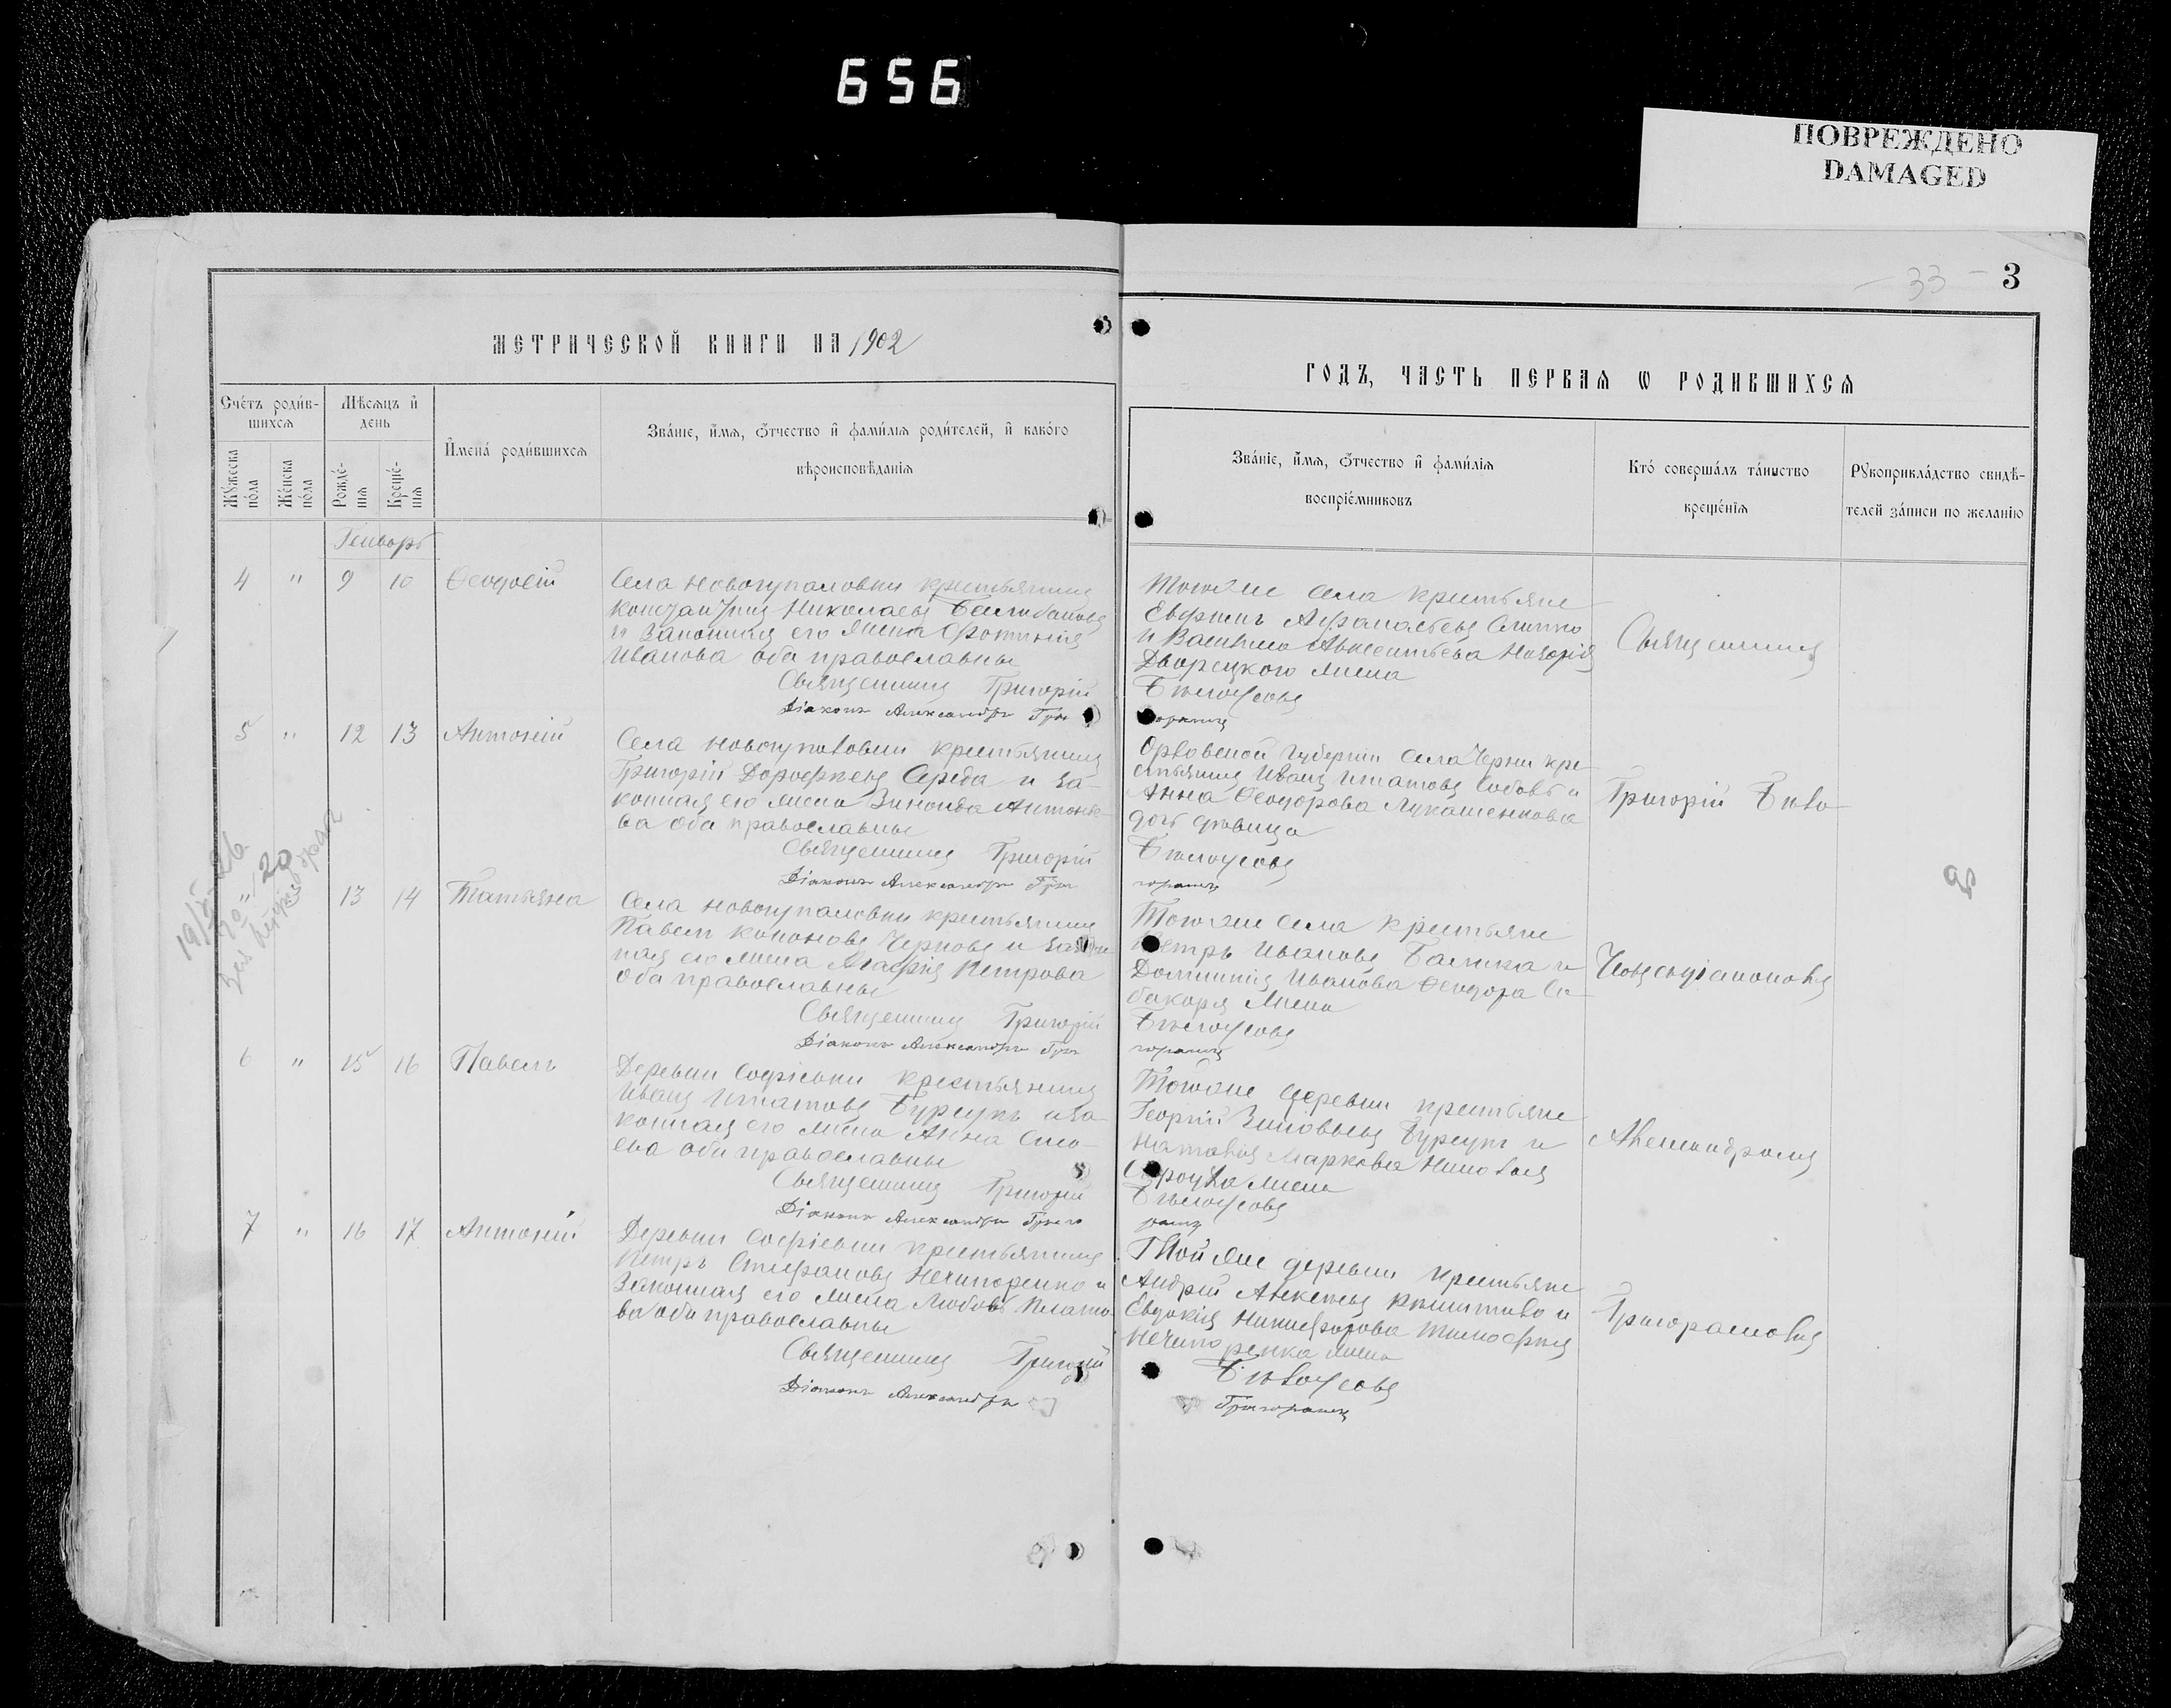 656
ПОВРЕЖДЕНО
DAMAGED
33
3
МЕТРИЧЕСКОЙ КНИГИ НА 1902
ГОДЪ, ЧАСТЬ ПЕРВАЯ Ѡ РОДИВШИХСЯ
Счётъ роди́в-
шихся
Мѣсяцъ и҆
день
И҆мена̀ роди́вшихся
Зва́нїе, и҆́мя, ѻ҆́тчество и҆ фами́лїя роди́телей, и҆ како́го
вѣроисповѣ́данїя
Мꙋ́жеска
по́ла
Же́нска
по́ла
Рожде́-
нїя
Креще́-
нїя
Зва́нїе, и҆́мя, ѻ҆́тчество и҆ фами́лїя
воспрїе́мниковъ
Кто̀ соверша́лъ та́инство
креще́нїя
Рꙋкоприкла́дство свидѣ́-
телей за́писи по жела́нїю
Генварь
4 " 9 10 Ѳеодосій
Села Новогупаловки крестьянинъ
Константинъ Николаевъ
и законная его жена Фотинія
Иванова оба православны
Священникъ Григорій
Діаконъ Александръ Гри
Того же села крестьяне
Афанасьевъ
и Василиса Авксентьева Назарія
Дворецкого жена
Бѣлоусовъ
горашъ
Священникъ
5 " 12 13 Антоній
Села Новогупаловки крестьянинъ
Григорій Дорофѣевъ Середа и за-
конная его жена Зиновія Антонье-
ва оба православны
Священникъ Григорій
Діаконъ Александръ Гри
Орловской губерніи села Черни кре
стьянинъ Иванъ Игнатовъ и
Анна Ѳеодорова Лукашенкова
дочь дѣвица
Бѣлоусовъ
горашъ
Григорій Бѣло-
13 14 Татьяна
Села Новогупаловки крестьянинъ
Павелъ Кононовъ Черновъ и закон
ная его жена Агафія Петрова
оба православны
Священникъ Григорій
Діаконъ Александръ Гри
Того же села крестьяне
Петръ Ивановъ Балика и
Домникія Иванова Ѳеодора
жена
Бѣлоусовъ
горашъ
усовъ съ діакономъ
6 " 15 16 Павелъ
Деревни Софіевки крестьянинъ
Иванъ Игнатовъ Бурсукъ и за-
конная его жена Анна
ева оба православны
Священникъ Григорій
Діаконъ Александръ Григо
Той же деревни крестьяне
Георгій Зиновьевъ Бурсукъ и
Наталія Маркова Николая
жена
Бѣлоусовъ
рашъ
Александромъ
7 " 16 17 Антоній
Деревни Софіевки крестьянинъ
Петръ Стефановъ Нечипоренко и
законная его жена Любовь Плато
ва оба православны
Священникъ Григорій
Діаконъ Александръ
Той же деревни крестьяне
Андрей Алексѣевъ и
Евдокія Никифорова Тимофея
Нечипоренка жена
Бѣлоусовъ
Григорашъ
Григорашомъ